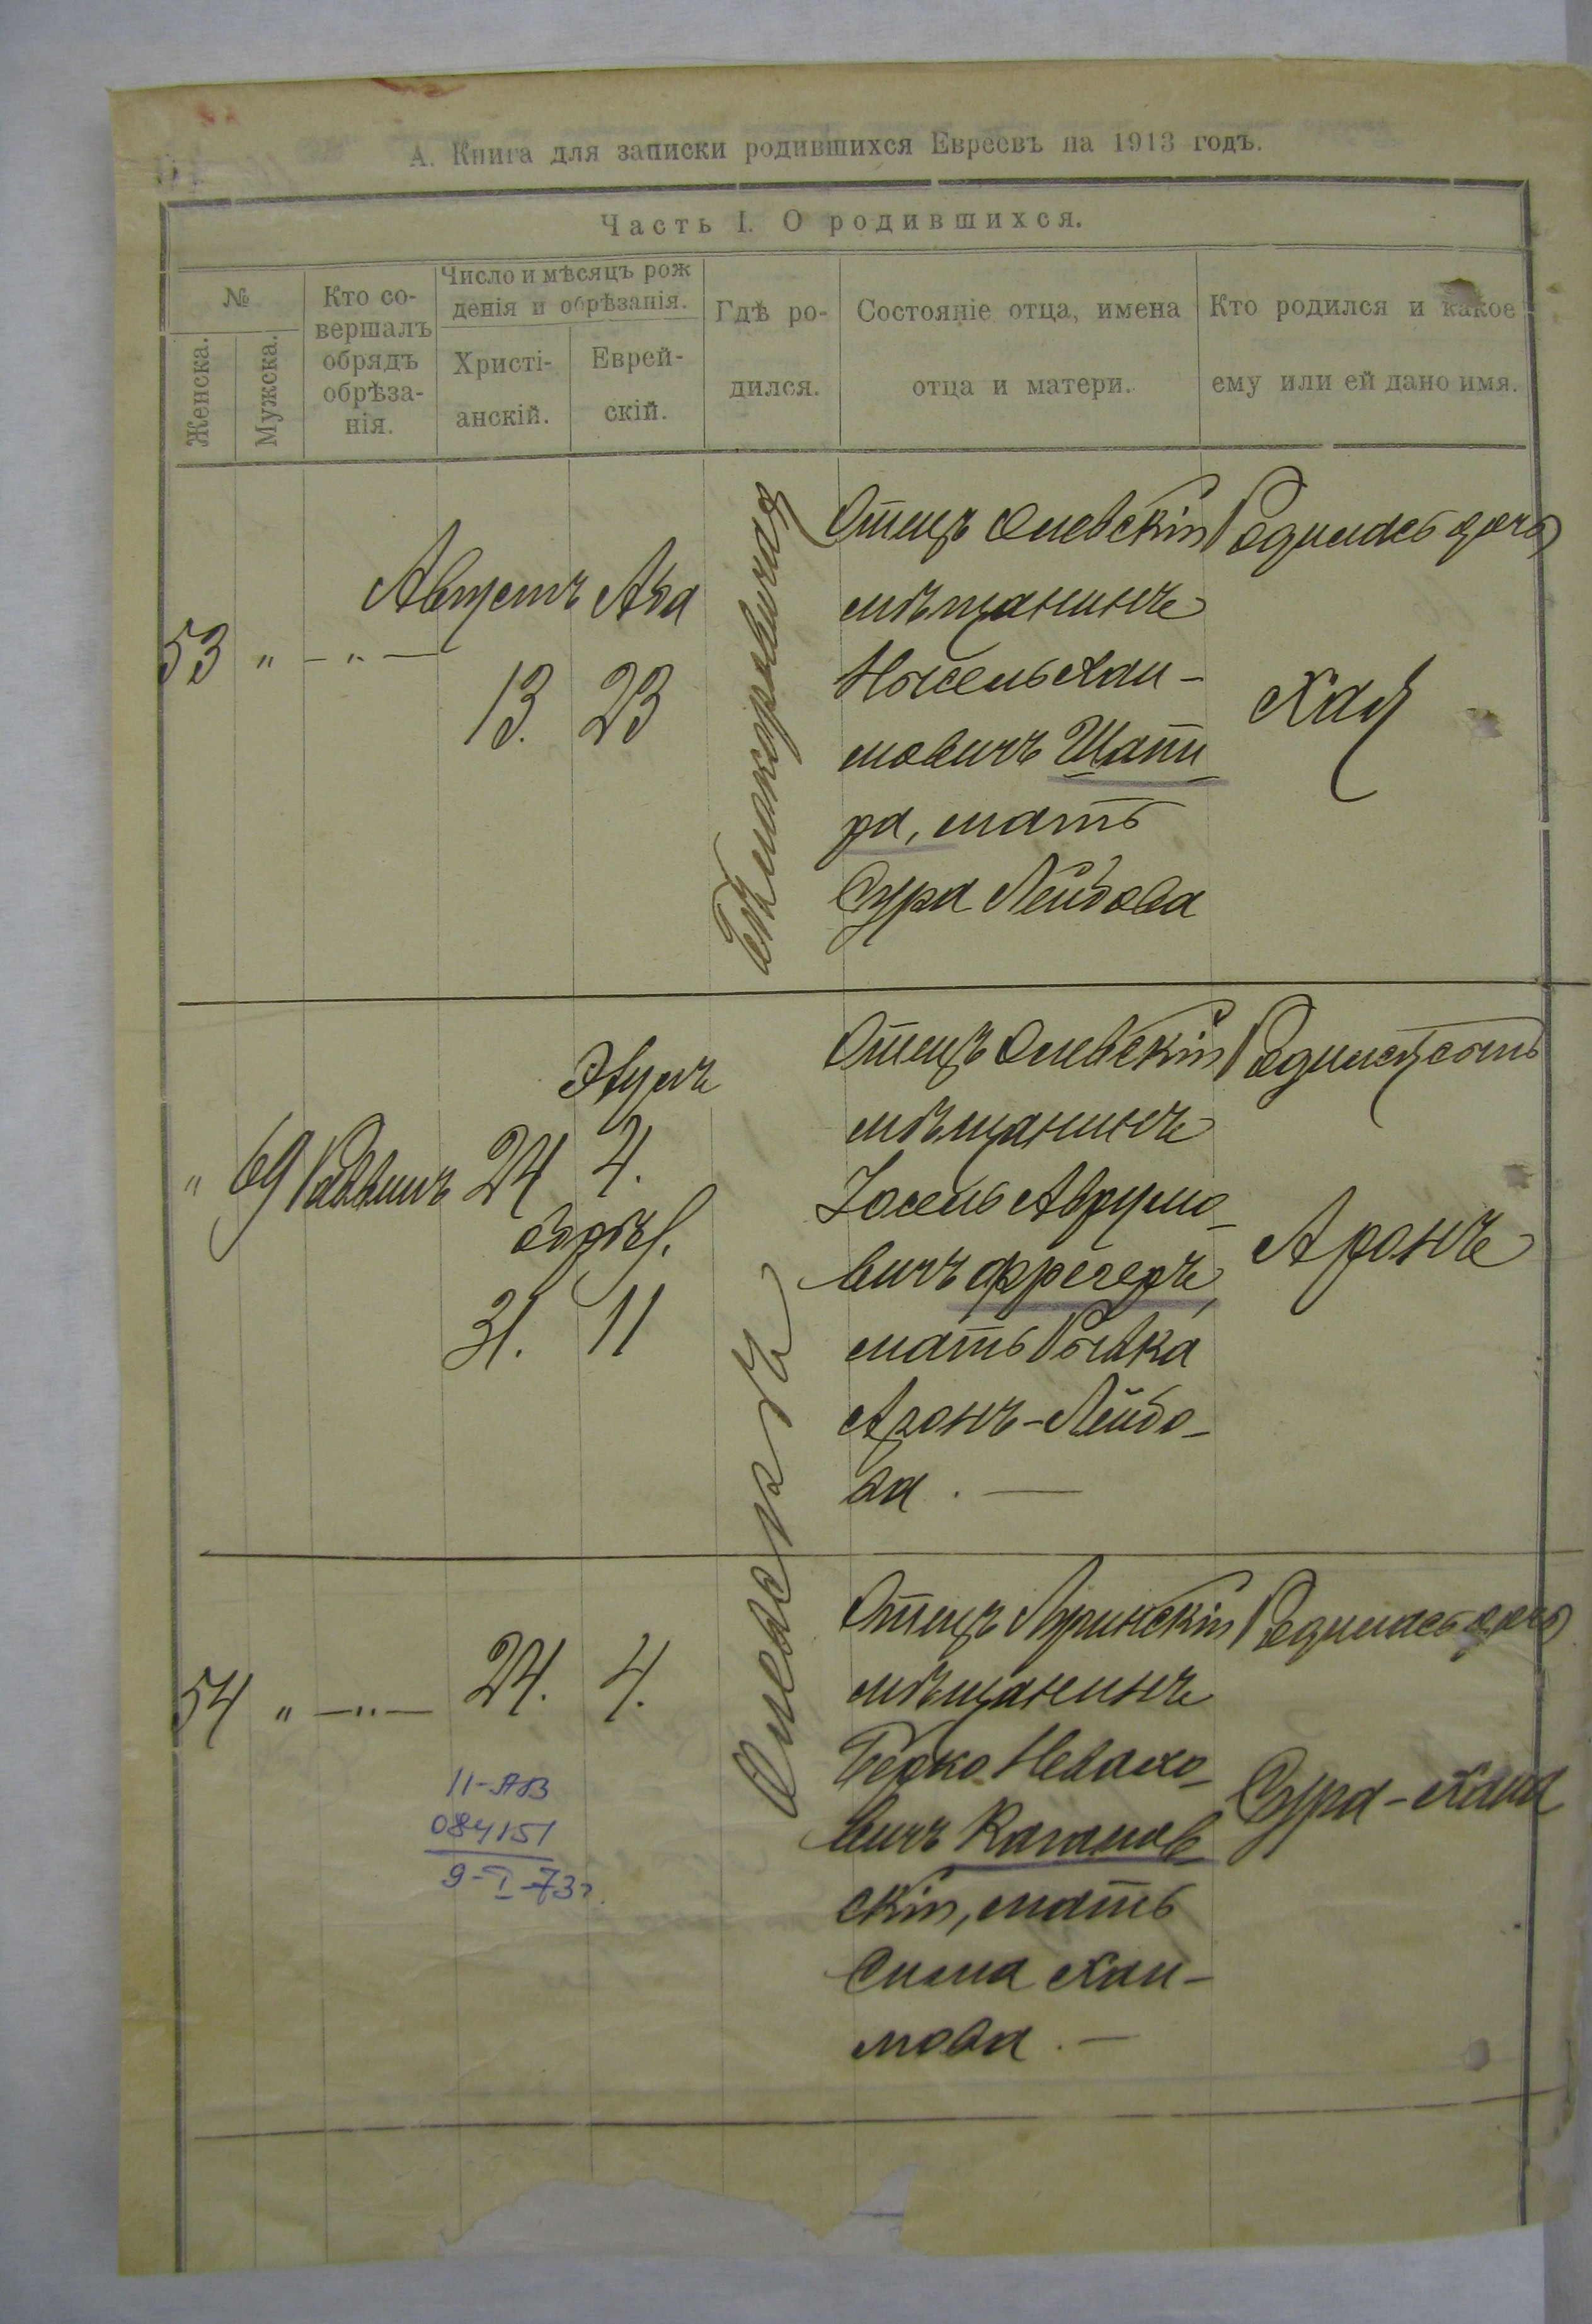 А. Книга для записки родившихся Евреевъ на 1913 годъ.
Часть I. О родившихся.
№
Женска.
Мужска.
Кто со-
вершалъ
обрядъ
обрѣза-
нія.
Число и мѣсяцъ рож
денія и обрѣзанія.
Христі-
анскій.
Еврей-
скій.
Гдѣ ро-
дился.
Состояніе отца, имена
отца и матери.
Кто родился и какое
ему или ей дано имя.
53 " — " —
Августъ Ава
13. 23
Отецъ Олевскій
мѣщанинъ
Носель Хаи-
мовичъ Шапи
ра, мать
Сура Лейбова
Родилась дочь
Хая
" 69 Раввинъ 24 4.
Элулъ
обрѣз.
31. 11
Олевскъ
Отецъ Олевскій
мѣщанинъ
Іосель Аврумо-
вичъ Фрегеръ,
мать Рывка
Аронъ-Лейбо-
ва. —
Родился сынъ
Аронъ
54 " — " — 24. 4.
11-ЯВ
084151
9-I-73г.
Отецъ
мѣщанинъ
Берко
вичъ Каганов-
скій, мать
Сима Хаи-
мова. —
Родилась дочь
Сура-Хана